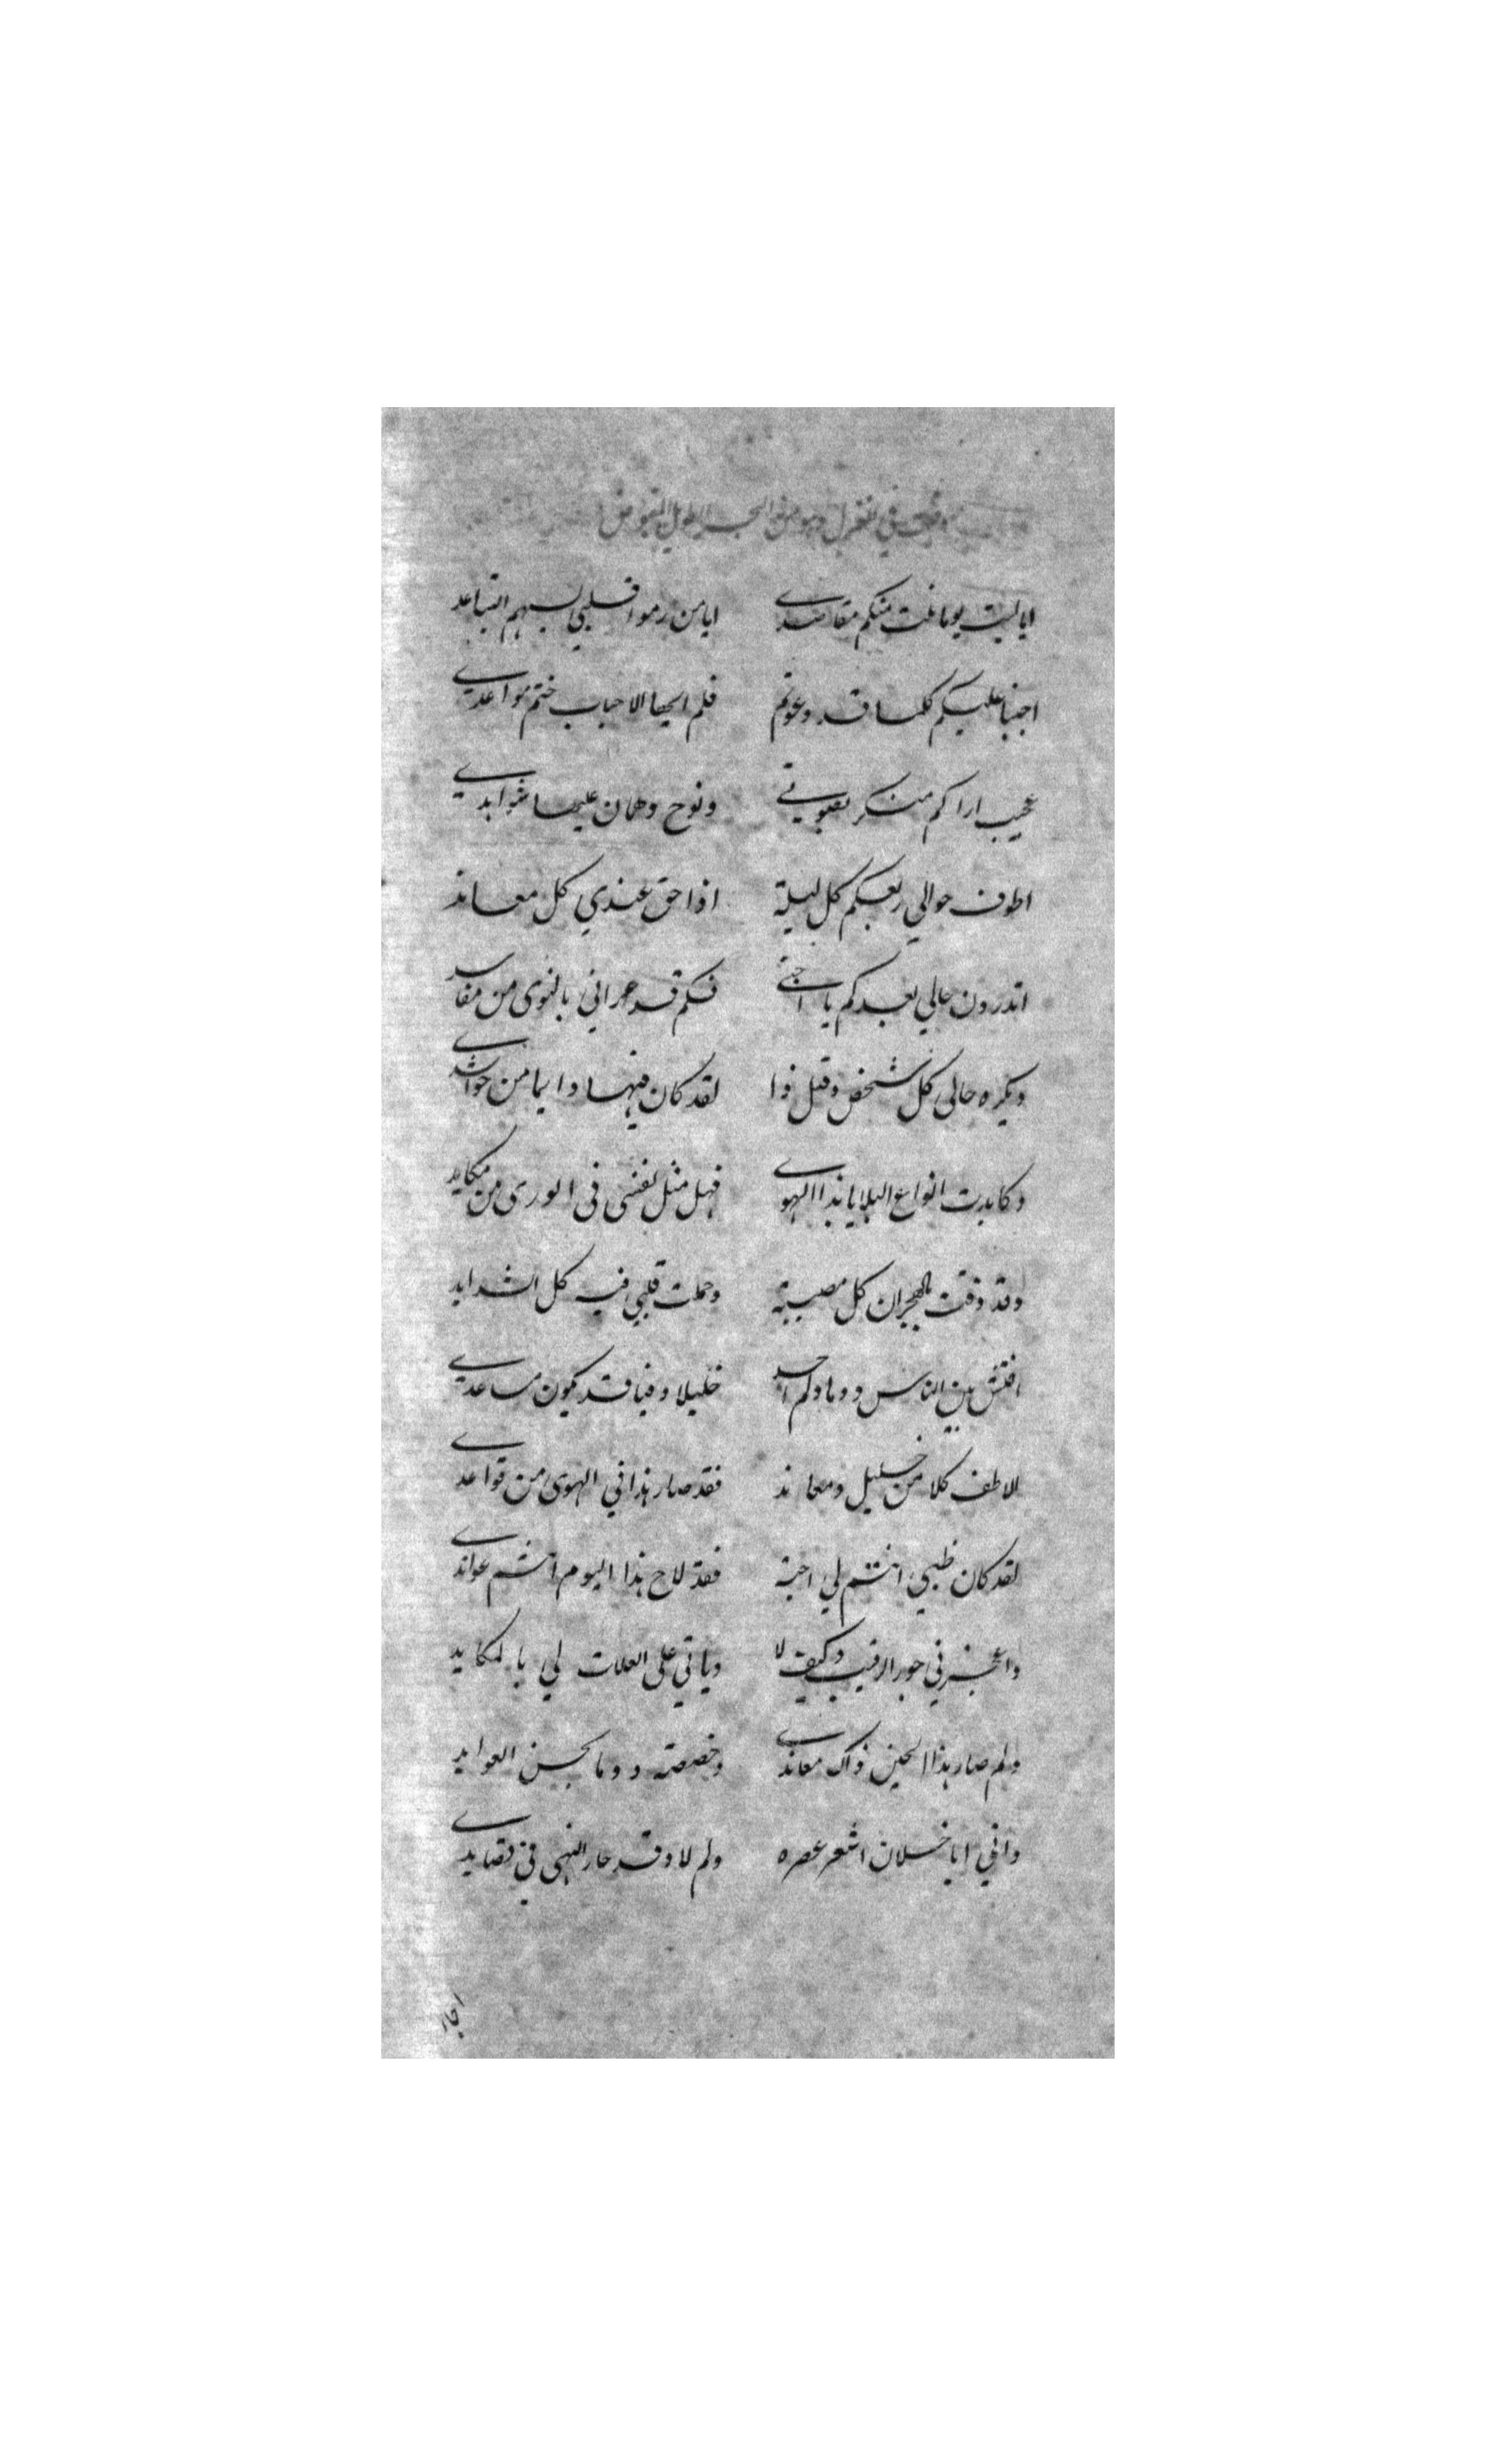 في تغزل وهو من البحر الطويل المقبوض
ايا ليت يوما نلت منكم مقاصدي ايا من رموا قلبي بسهم التباعد
اجبنا عليكم كلما قد دعوتم فلم ايها الاحباب خنتم مواعدي
عجيب اراكم منكر بصبوتي ونوح وهمان عليها شواهدي
اطوف حوالي ربعكم كل ليلة اذا حق عندي كل معاند
اتدرون حالي بعدكم يا احبتي فكم قد عراني بالنوى من مفاسد
ويكره حالي كل شخص وقبل ذا لقد كان فيها دايما من حواسدي
وكابدت انواع البلايا بذا الهوى فهل مثل نفسي في الورى من مكابد
وقد ذقت بالهجران كل مصيبة وحملت قلبي فيه كل الشدايد
افتش بين الناس دوما ولم احد خليلا وفيا قد يكون مساعدي
الاطف كلا من خليل ومعاند فقد صار هذا في الهوى من قواعدي
لقد كان ظني انتم لي احبة فقد لاح هذا اليوم انتم عواندي
في جور الرقيب وكيف لا وياتي على العلات لي بالمكايد
ولم صار هذا الحين ذاك معاندي وخصصته دوما بحسن العوايد
واني ايا خلان اشعر عصره ولم لا وقد حار النهى في قصايدي